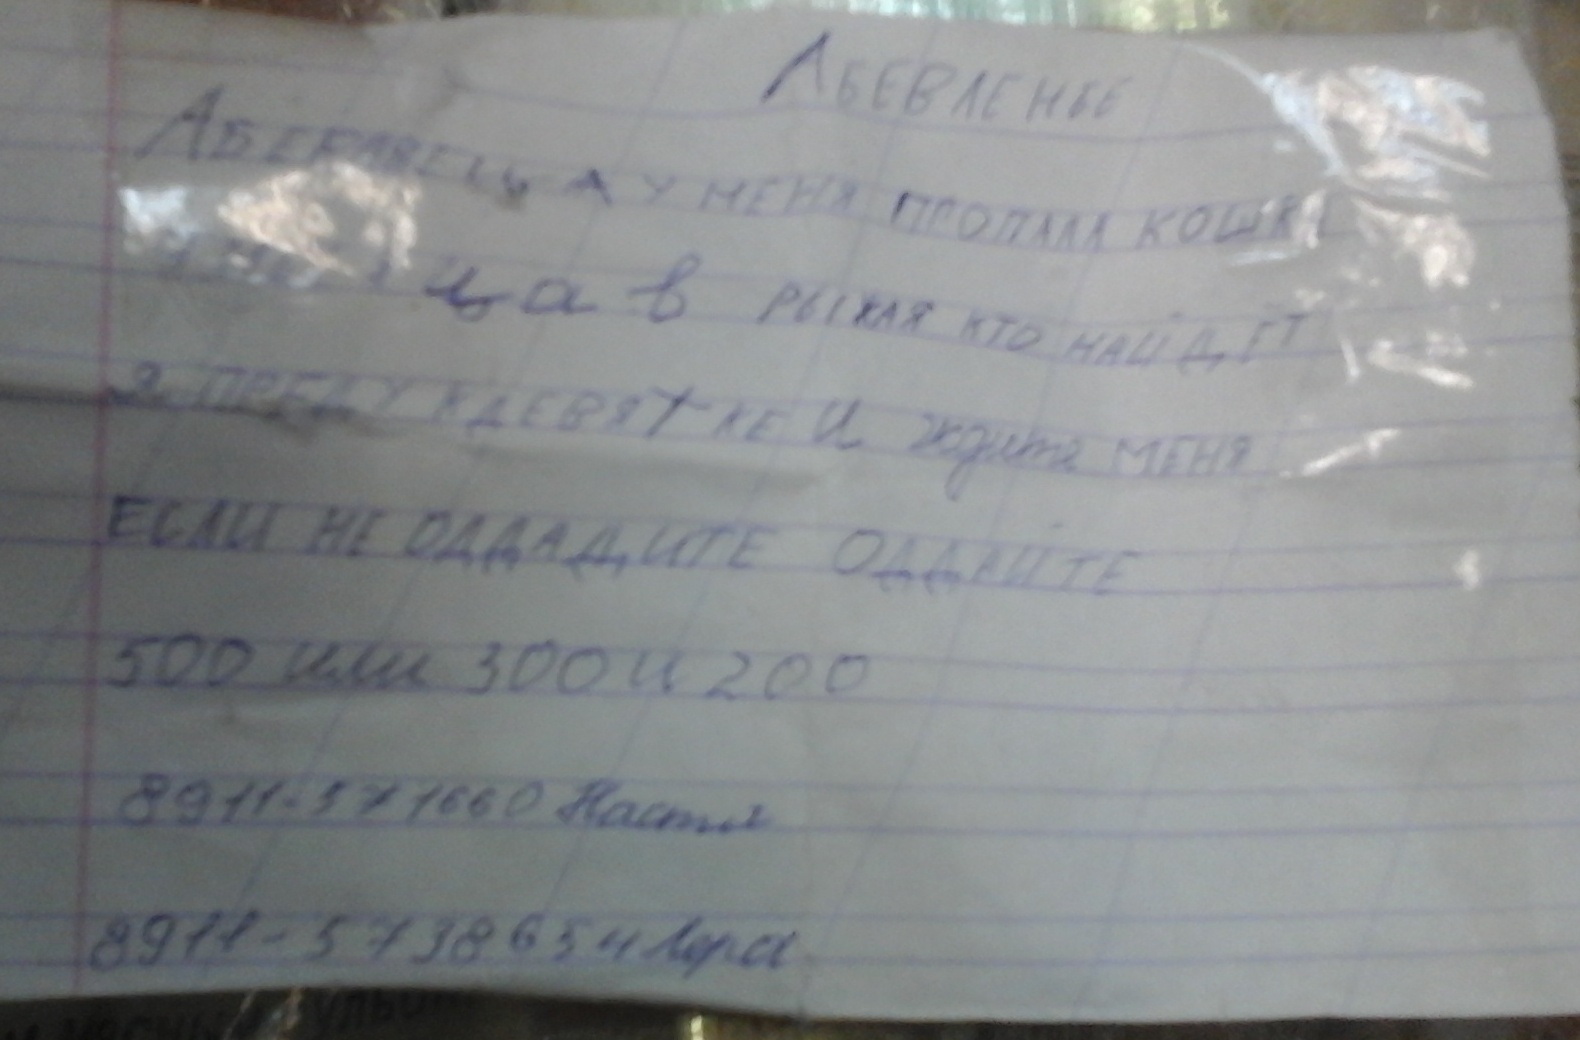 АБЕВЛЕНЬЕ
АБЕВЛЯЕЦЬА У МЕНЯ ПРОПАЛА КОШКА
ца в РЫЖАЯ КТО НАЙДЕТ
Я ПРЕДУ КДЕВЯТКЕ И ждите МЕНЯ
ЕСЛИ НЕ ОДДАДИТЕ ОДДАЙТЕ
500 или 300 и 200
8911-571660 Настя
8911-5738654 Лера